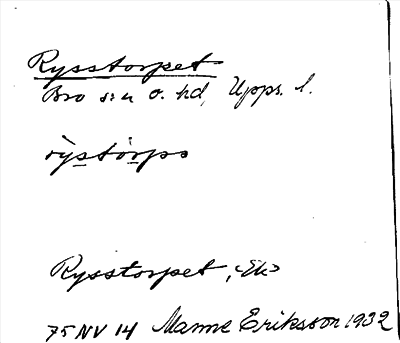 Rysstorpet
Bro sn o. hd, Upps. l.
rystorps
Rysstorpet, Ek
75 NV 14 Manne Eriksson 1932